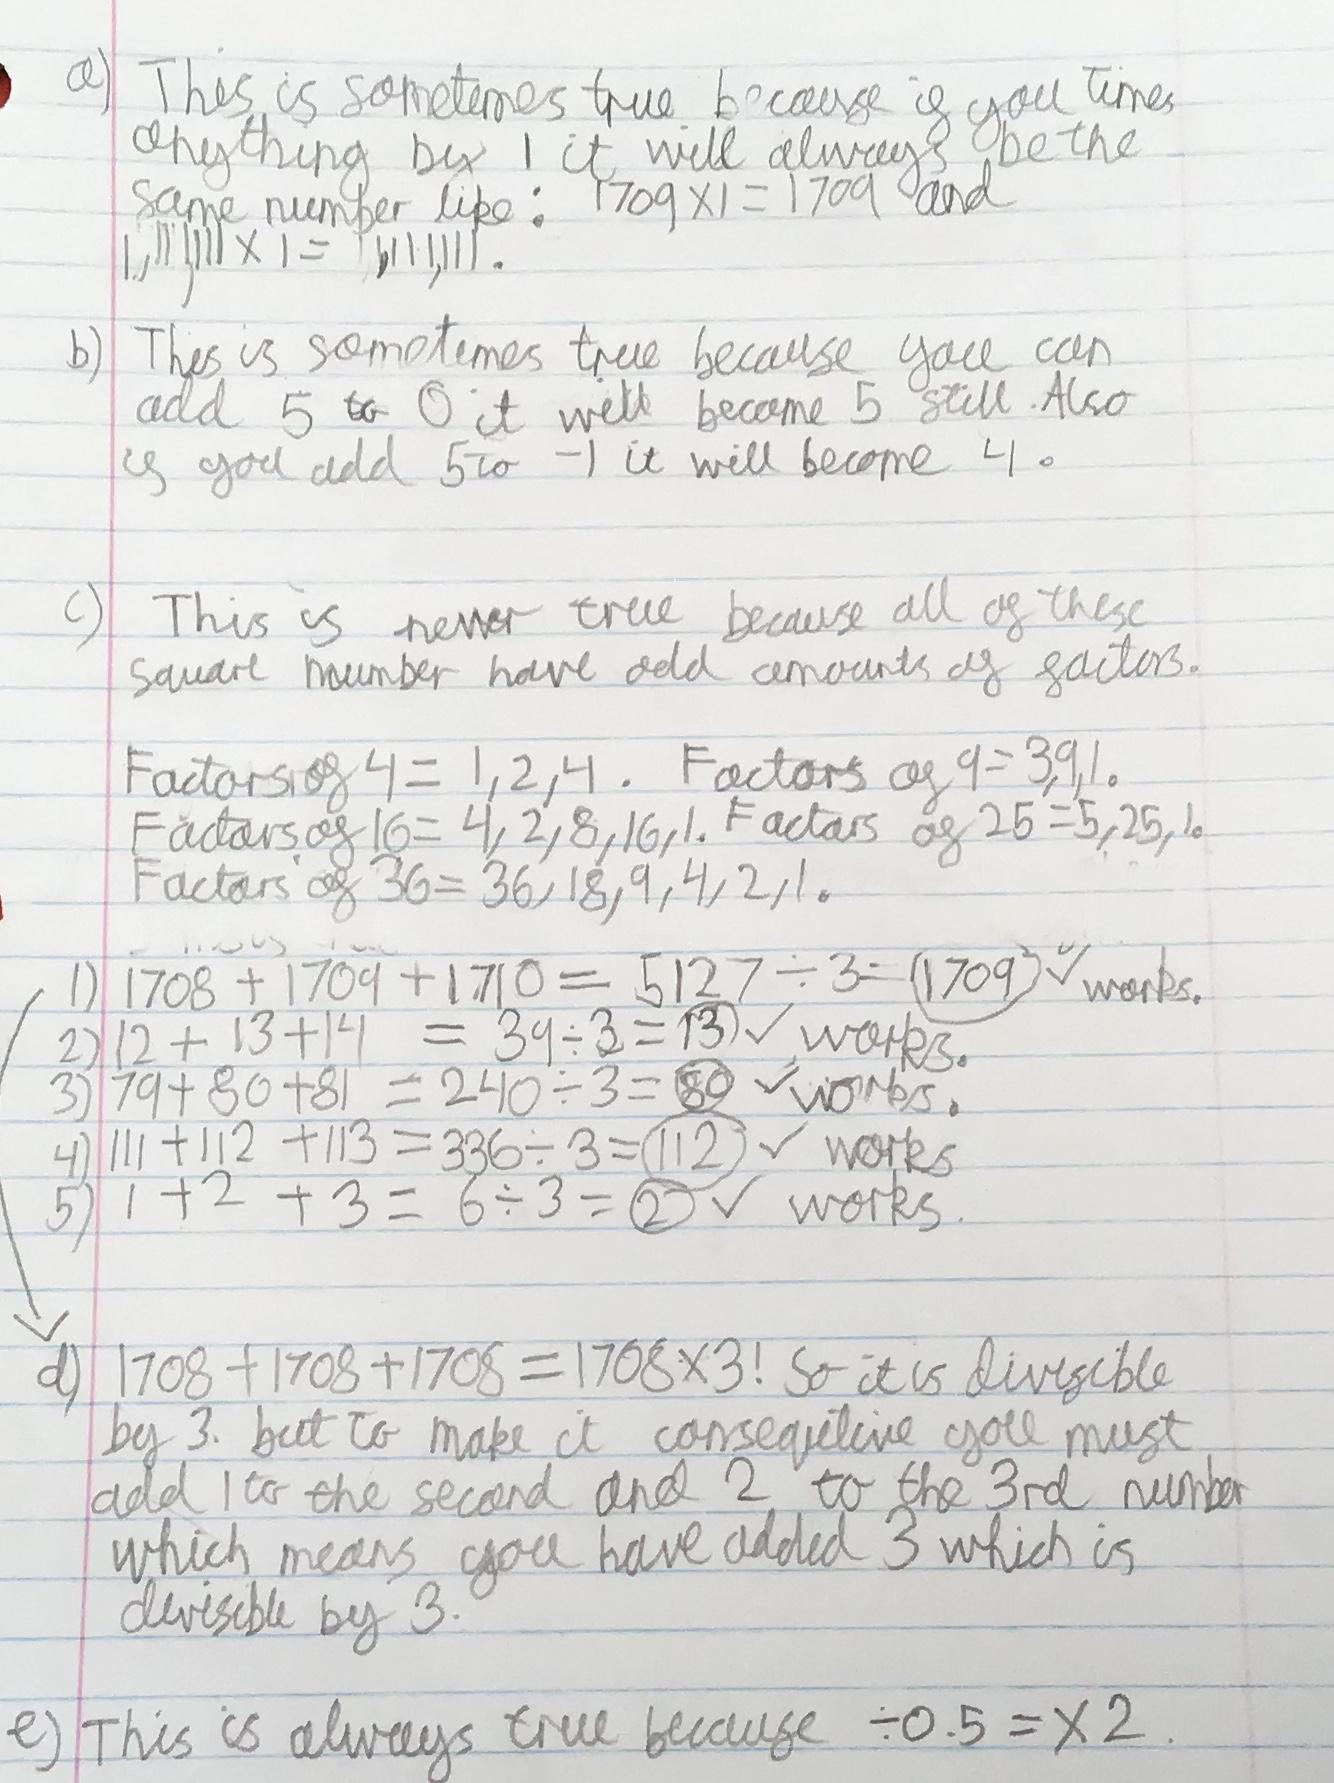 a) This is sometimes true because if you times
anything by 1 it will always be the
same number like: 1709 x 1 = 1709 and
1,111,111 x 1 = 1,111,111.
b) This is sometimes true because you can
add 5 to 0 it will become 5 still. Also
if you add 5 to -1 it will become 4.
c) This is never true because all of these
square number have odd amounts of factors.
Factors of 4 = 1,2,4. Factors of 9 = 3,9,1.
Factors of 16 = 4, 2, 8, 16, 1. Factors of 25 = 5, 25, 1.
Factors of 36 = 36, 18, 9, 4, 2, 1.
1) 1708 + 1709 + 1710 = 5127 ÷ 3 = 1709 ✓ works.
2) 12 + 13 + 14 = 39 ÷ 3 = 13 ✓ works.
3) 79 + 80 + 81 = 240 ÷ 3 = 80 ✓ works.
4) 111 + 112 + 113 = 336 ÷ 3 = 112 ✓ works
5) 1 + 2 + 3 = 6 ÷ 3 = 2 ✓ works.
d) 1708 + 1708 + 1708 = 1708 x 3! So it is divisible
by 3. but to make it consequtive you must
add 1 to the second and 2 to the 3rd number
which means you have added 3 which is
divisible by 3.
e) This is always true because ÷0.5 = x 2.